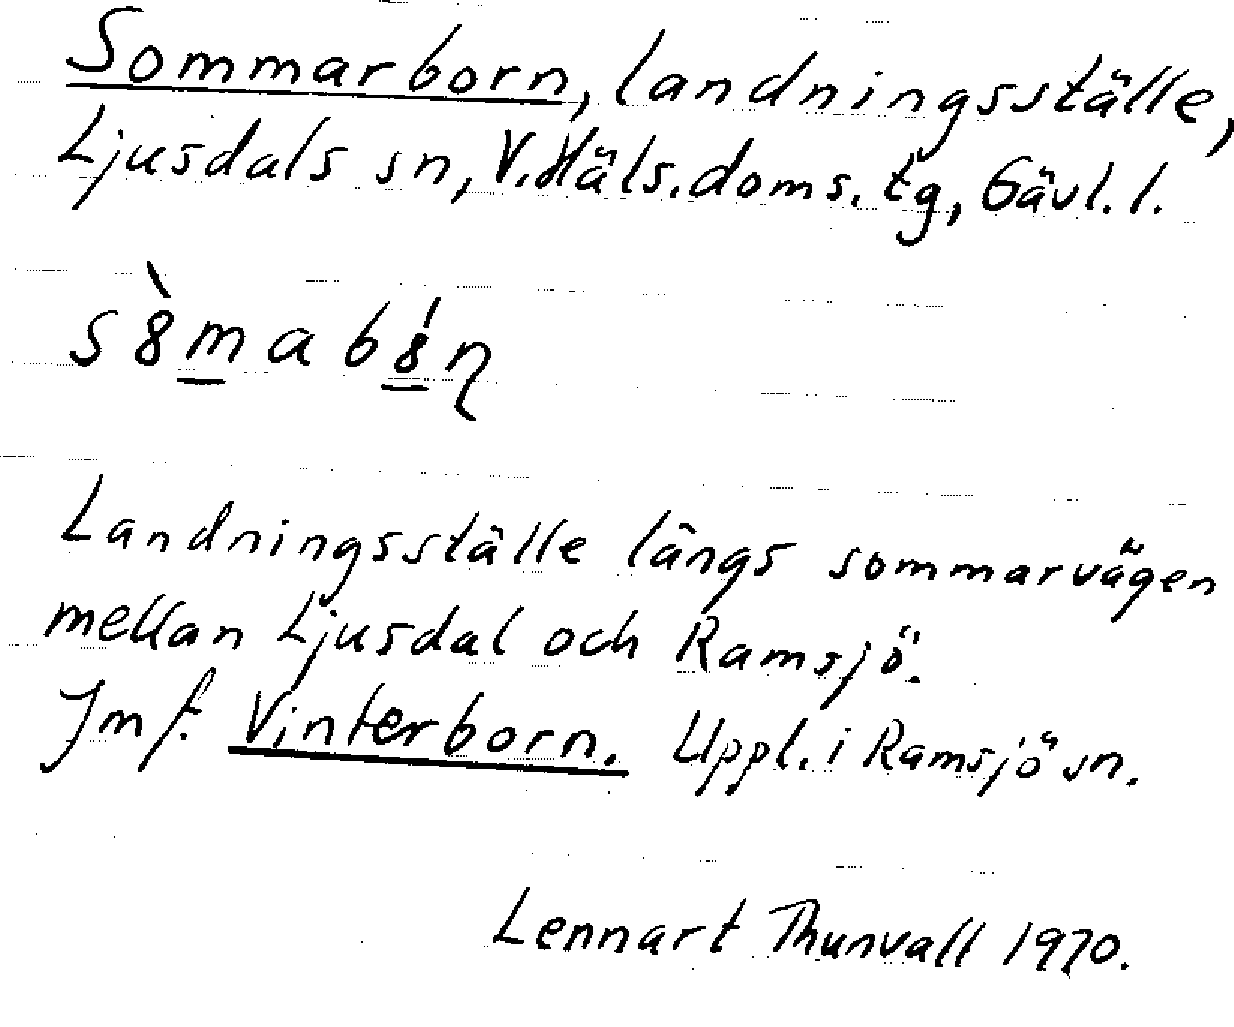 Sommarborn, landningsställe,
Ljusdals sn, V. Häls. doms. tg, Gävl. l.
s8̀m̲ab8̲́ɳ
Landningsställe längs sommarvägen
mellan Ljusdal och Ramsjö.
Jmf. Vinterborn. Uppl. i Ramsjö sn.
Lennart Thunvall 1970.